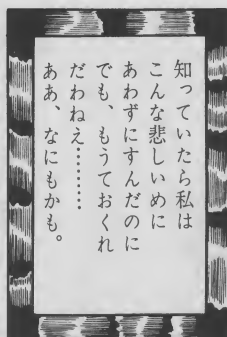 知っていたら私は
こんな悲しいめに
あわずにすんだのに
でも、もうておくれ
だわねえ………
ああ、なにもかも。